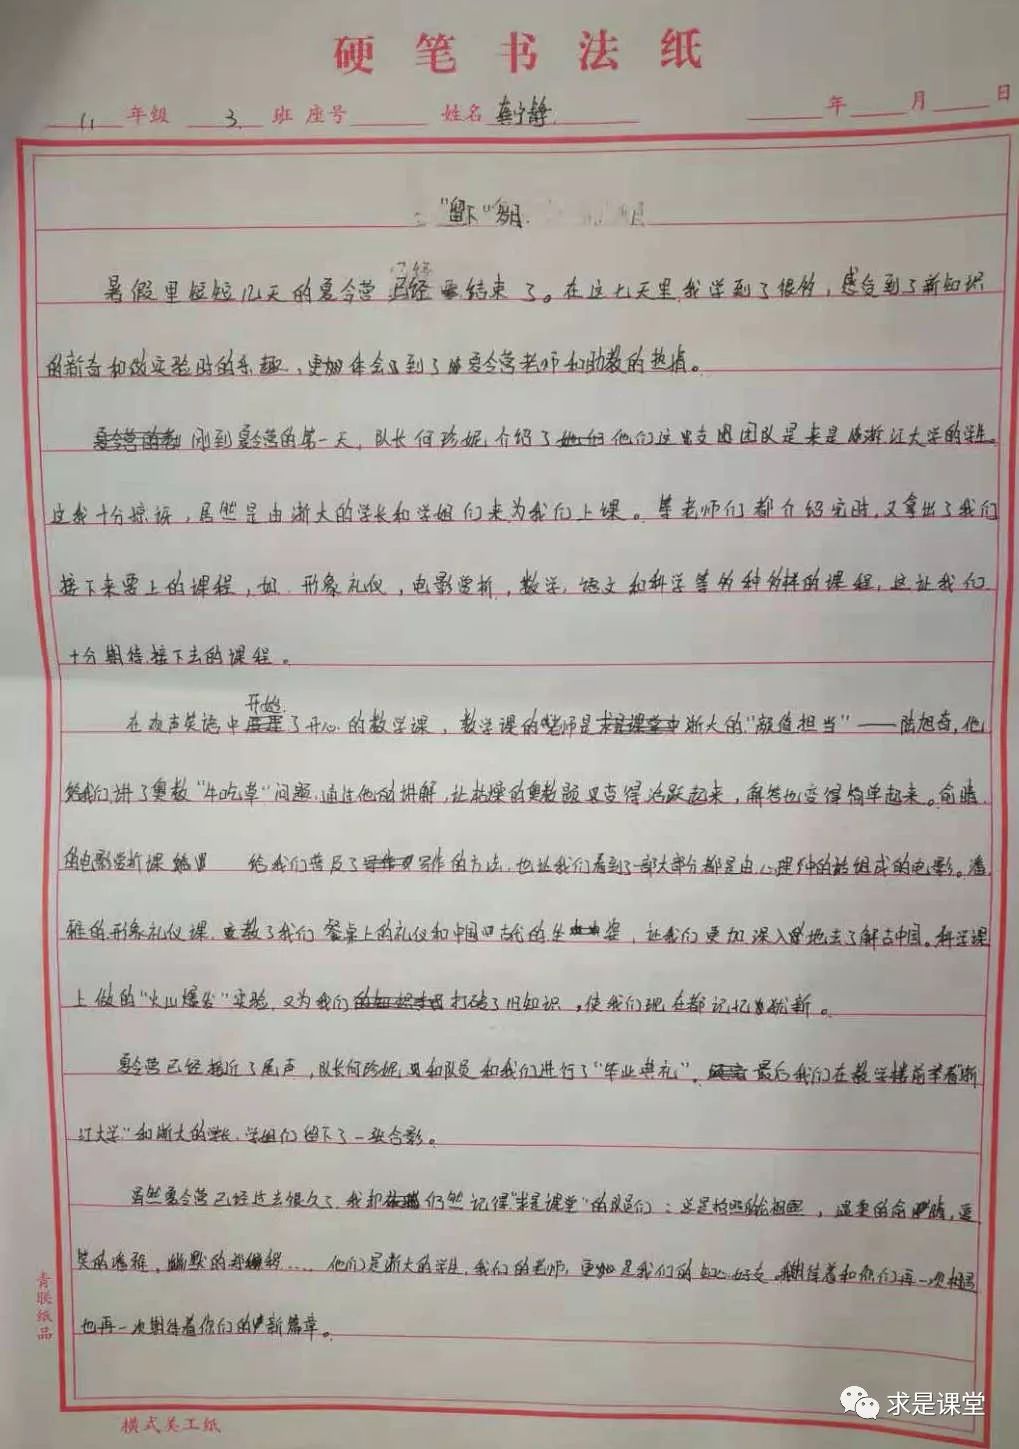 硬笔书法纸
年级 3 班 座号 姓名 年 月 日
"留下"
暑假里短短几天的夏令营已经要结束了。在这七天里我学到了很多,感受到了新知识
的新奇和做实验时的乐趣,更加体会到了夏令营老师和助教的热情。
刚到夏令营的第一天,队长何珍妮介绍了他们这支团队是来是浙江大学的学生。
这我十分惊讶,居然是由浙大的学长和学姐们来为我们上课。等老师们都介绍完时,又拿出了我们
接下来要上的课程,如:形象礼仪,电影赏析,数学,语文和科学等多种多样的课程,这让我们
十分期待接下去的课程。
在欢声笑语中开始了开心的数学课,数学课的老师是浙大的"颜值担当"——陆旭奇,他
给我们讲了奥数"牛吃草"问题,通过他的讲解,让枯燥的奥数题变得活跃起来,解答也变得简单起来。俞晴
的电影赏析课 给我们普及了写作的方法,也让我们看到了一部大部分都是由心理组成的电影。潘
雅的形象礼仪课,教了我们餐桌上的礼仪和中国古代的坐姿,让我们更加深入地去了解古中国。科学课
上做的"火山爆发"实验,又为我们打破了旧知识,使我们现在都记忆犹新。
夏令营已经接近了尾声,队长何珍妮和队员和我们进行了"毕业典礼"。最后我们在教学楼前举着"浙
江大学"和浙大的学长、学姐们留下了一张合影。
虽然夏令营已经过去很久了,我却仍然记得"求是课堂"的队员们:总是拍照的,温柔的俞晴,爱
笑的潘雅,幽默的……他们是浙大的学生,我们的老师,更加是我们的知心好友。期待着和你们再一次相遇
也再一次期待着你们的新篇章。
青联纸品
横式美工纸
求是课堂